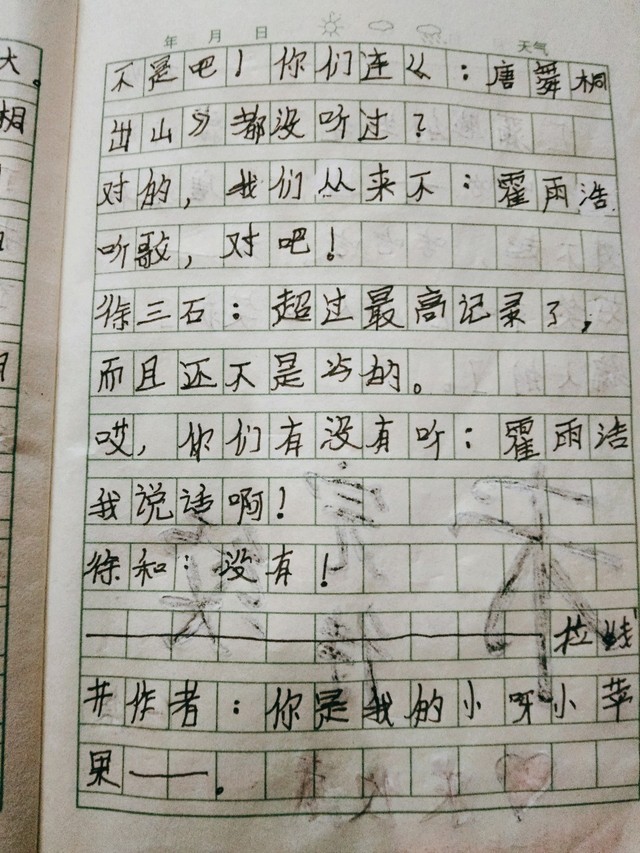 年 月 日 天气
不是吧！你们连么：唐舞桐
出山》都没听过？
对的，我们从来不：霍雨浩
听歌，对吧！
徐三石：超过最高记录了，
而且还不是当的。
哎，你们有没有听：霍雨浩
我说话啊！
徐和：没有！
拉线
井作者：你是我的小呀小苹
果——.